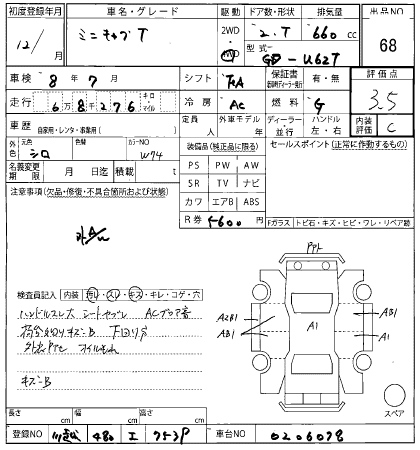 初度登録年月 車名・グレード 駆動 ドア数・形状 排気量 出品NO
12/ 月 ミニキャブ T 2WD 4WD 2.T 660 cc 68
型式 GD-U62T
車検 8年7月 シフト FCA 保証書 有・無 評価点
走行 6万8千276 キロ・マイル 冷房 AC 燃料 G 3.5
車歴 自家用・レンタ・事業用( ) 定員 人 外車モデル 年 ディーラー・並行 ハンドル 左・右 内装評価 C
外色 元色 シロ 色替 カラーNO W74
装備品(純正品に限る) セールスポイント(正常に作動するもの)
名義変更期限 月 日迄 積載 t
PS PW AW
SR TV ナビ
カワ エアB ABS
R券 5600 円
注意事項(欠品・修復・不具合箇所および状態)
Fガラス トビ石・キズ・ヒビ・ワレ・リペア跡
検査員記入 内装 汚レ・スレ・キズ・キレ・コゲ・穴
ハンドルスレ大 シートヨゴレ ACブロア音
荷台 キズB 下回りサビ
オイルもれ
キズB
A2B1
AB1
A1
AB1
A1
スペア
長さ cm 幅 cm 高さ cm
登録NO 480 エ 車台NO 0206078